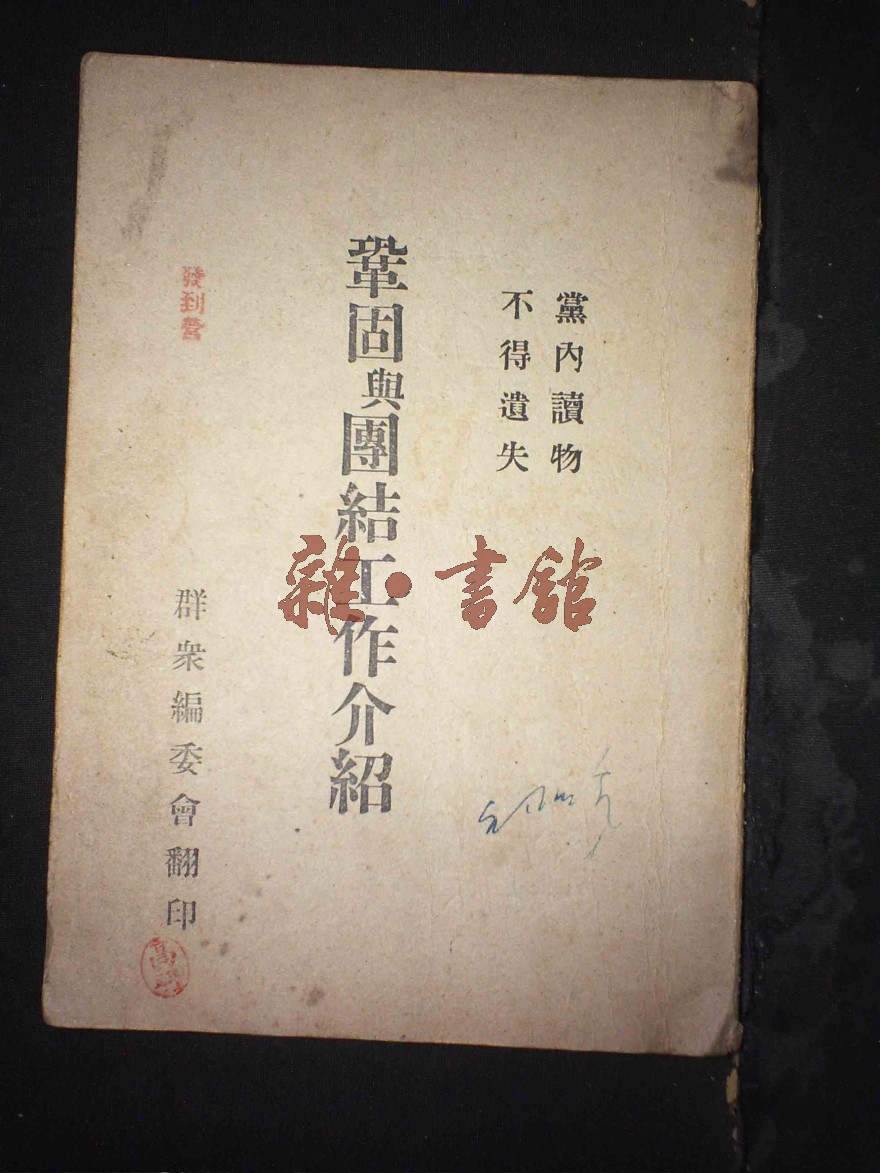 黨內讀物
不得遺失
鞏固與團結工作介紹
發到營
群衆編委會翻印
雜·書館